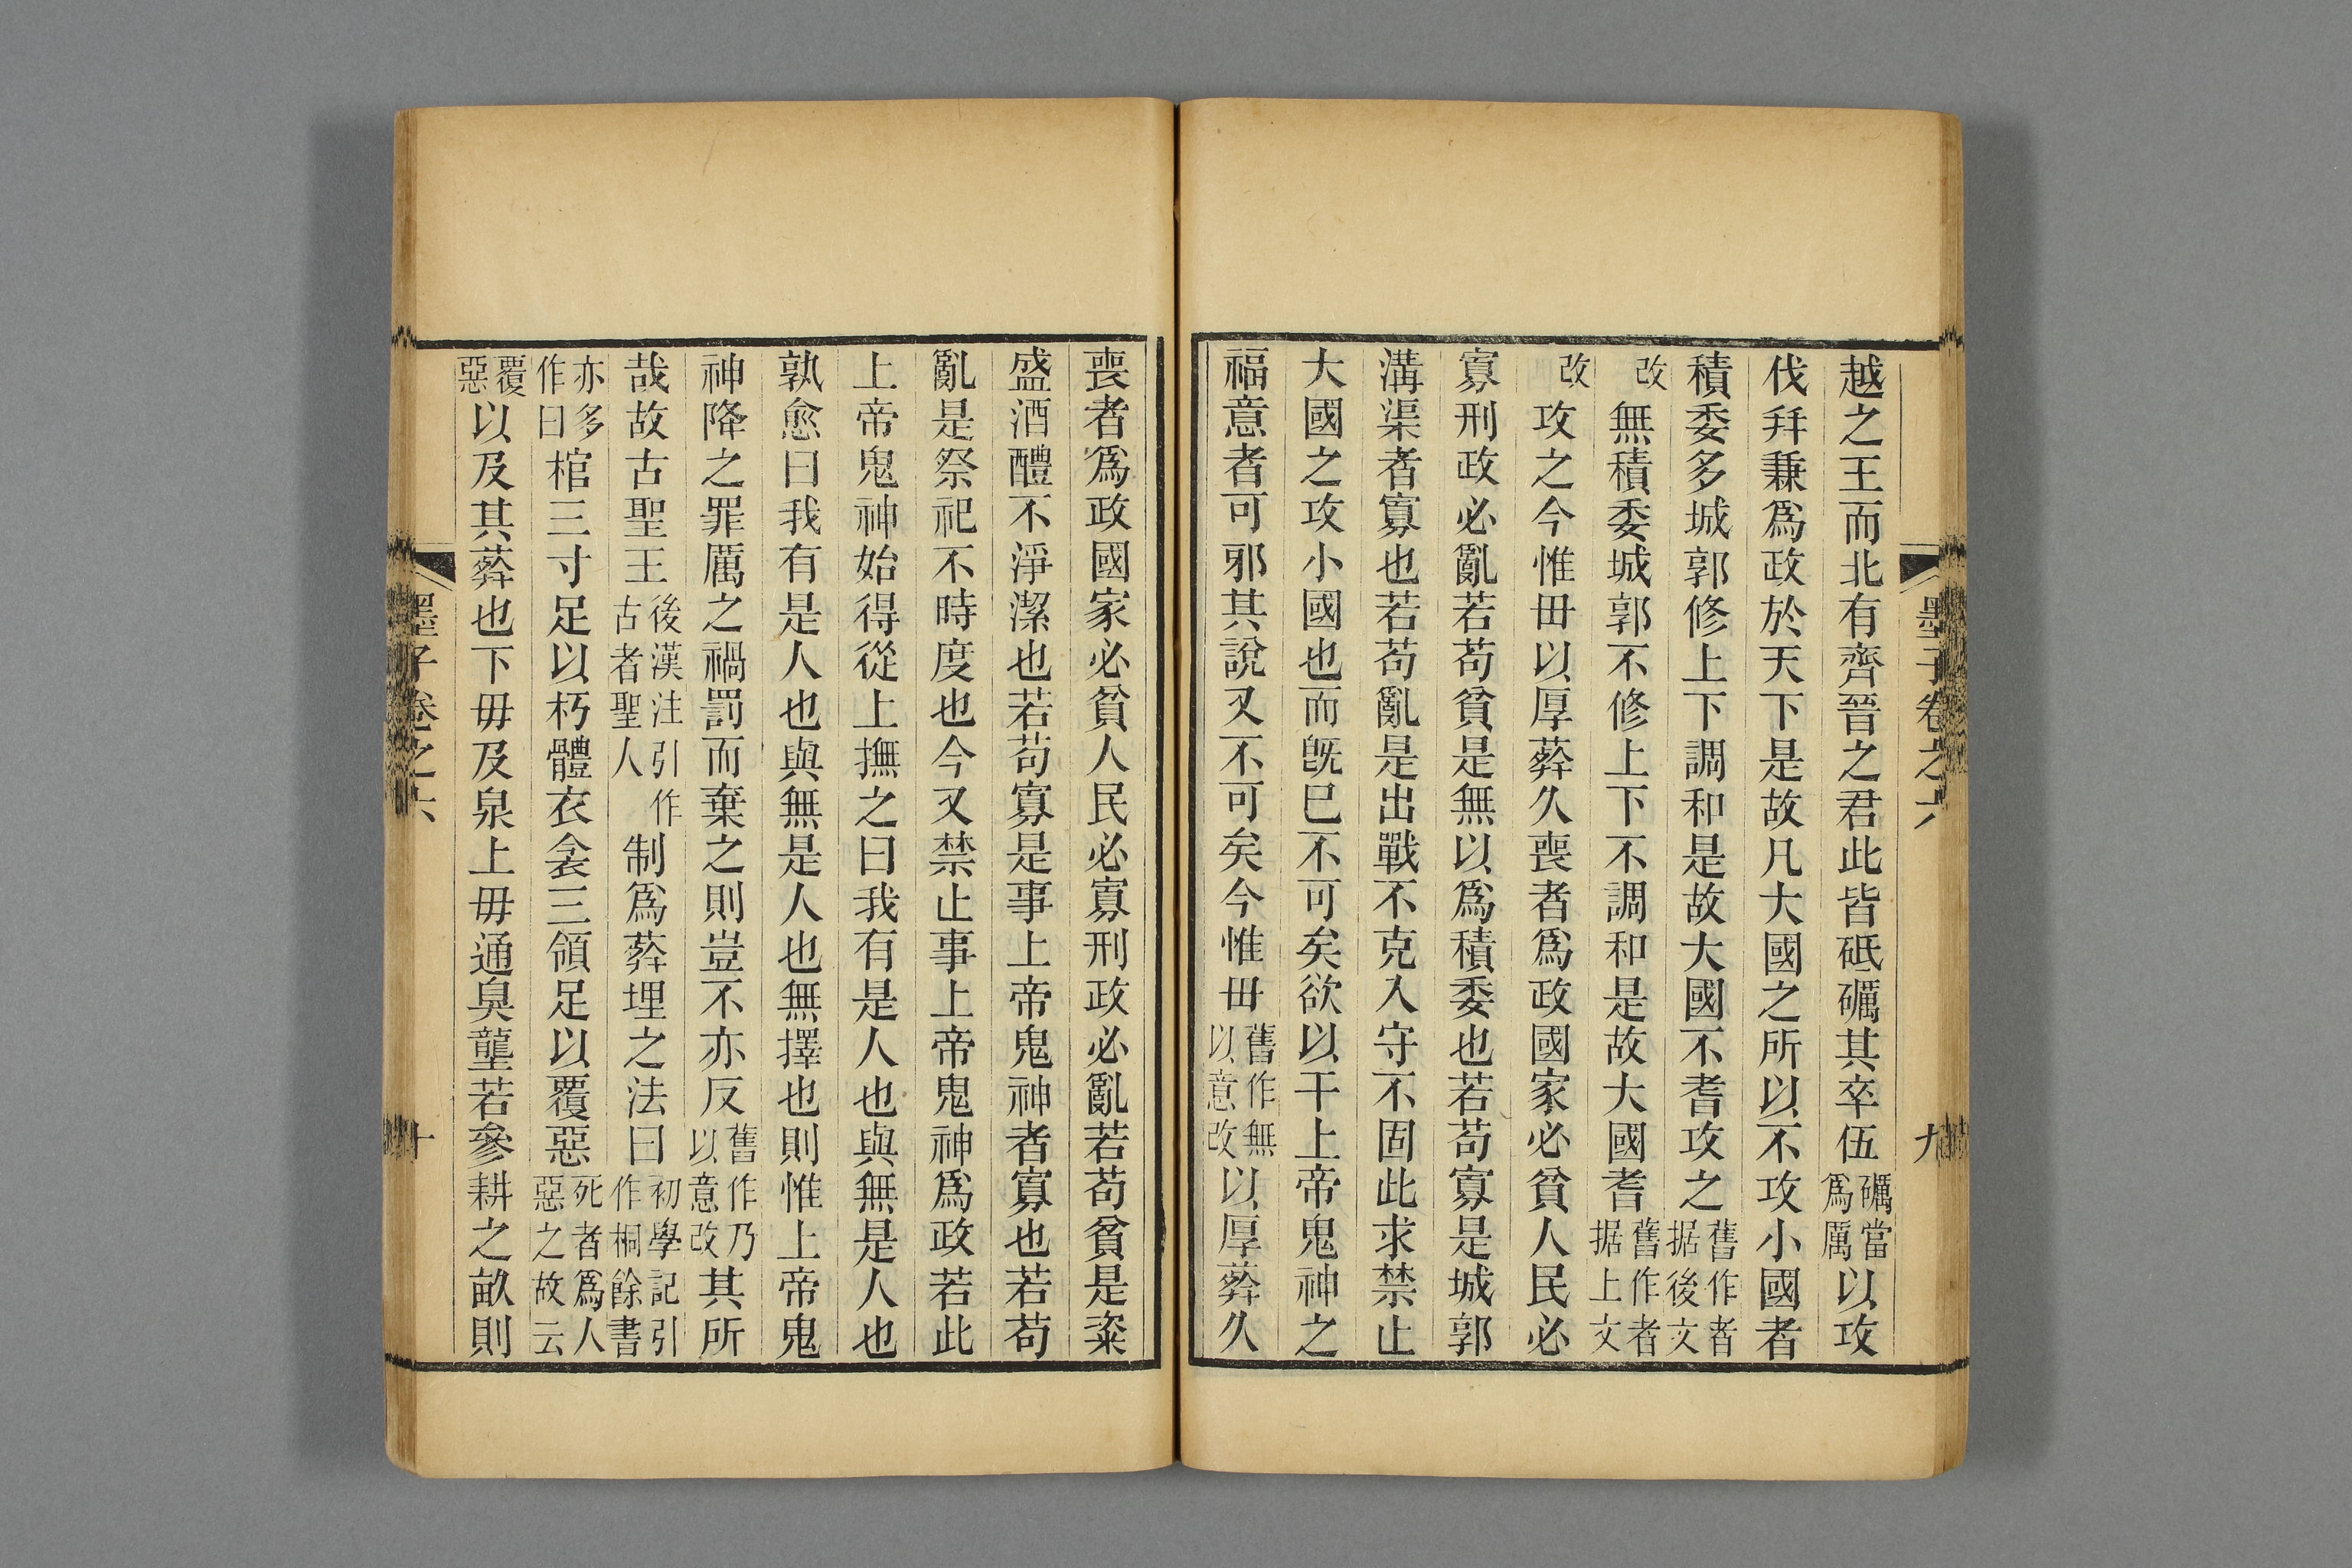 墨子卷之六 九
越之王而北有齊晉之君此皆砥礪其卒伍礪當爲厲以攻
伐幷兼爲政於天下是故凡大國之所以不攻小國者
積委多城郭修上下調和是故大國不耆攻之舊作者据後文
改無積委城郭不修上下不調和是故大國耆舊作者据上文
改攻之今惟毌以厚葬久喪者爲政國家必貧人民必
寡刑政必亂若苟貧是無以爲積委也若苟寡是城郭
溝渠者寡也若苟亂是出戰不克入守不固此求禁止
大國之攻小國也而旣已不可矣欲以干上帝鬼神之
福意者可邪其說又不可矣今惟毌舊作無以意改以厚葬久
喪者爲政國家必貧人民必寡刑政必亂若苟貧是粢
盛酒醴不淨潔也若苟寡是事上帝鬼神者寡也若苟
亂是祭祀不時度也今又禁止事上帝鬼神爲政若此
上帝鬼神始得從上撫之曰我有是人也與無是人也
孰愈曰我有是人也與無是人也無擇也則惟上帝鬼
神降之罪厲之禍罰而棄之則豈不亦反舊作乃以意改其所
哉故古聖王後漢注引作古者聖人制爲葬埋之法曰初學記引作桐餘書
亦多作曰棺三寸足以朽體衣衾三領足以覆惡死者爲人惡之故云
覆惡以及其葬也下毋及泉上毋通臭壟若參耕之畝則
墨子卷之六 十